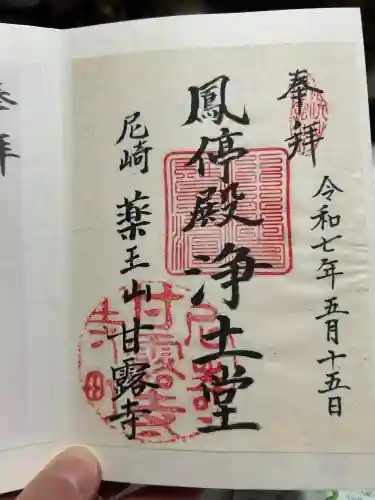 奉拝
令和七年五月十五日
鳳停殿 浄土堂
尼崎 薬王山甘露寺
奉拝